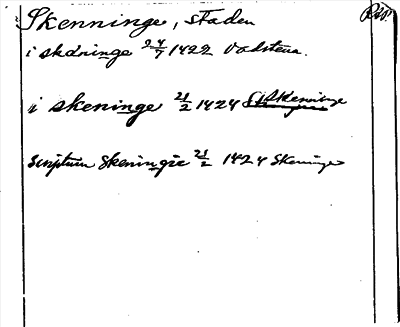 Skenninge, staden
i skäninge 24/7 1422 Vadstena.
i skeninge 21/2 1424 Skeninge
Scriptum Skeningie 21/2 1424 Skeninge